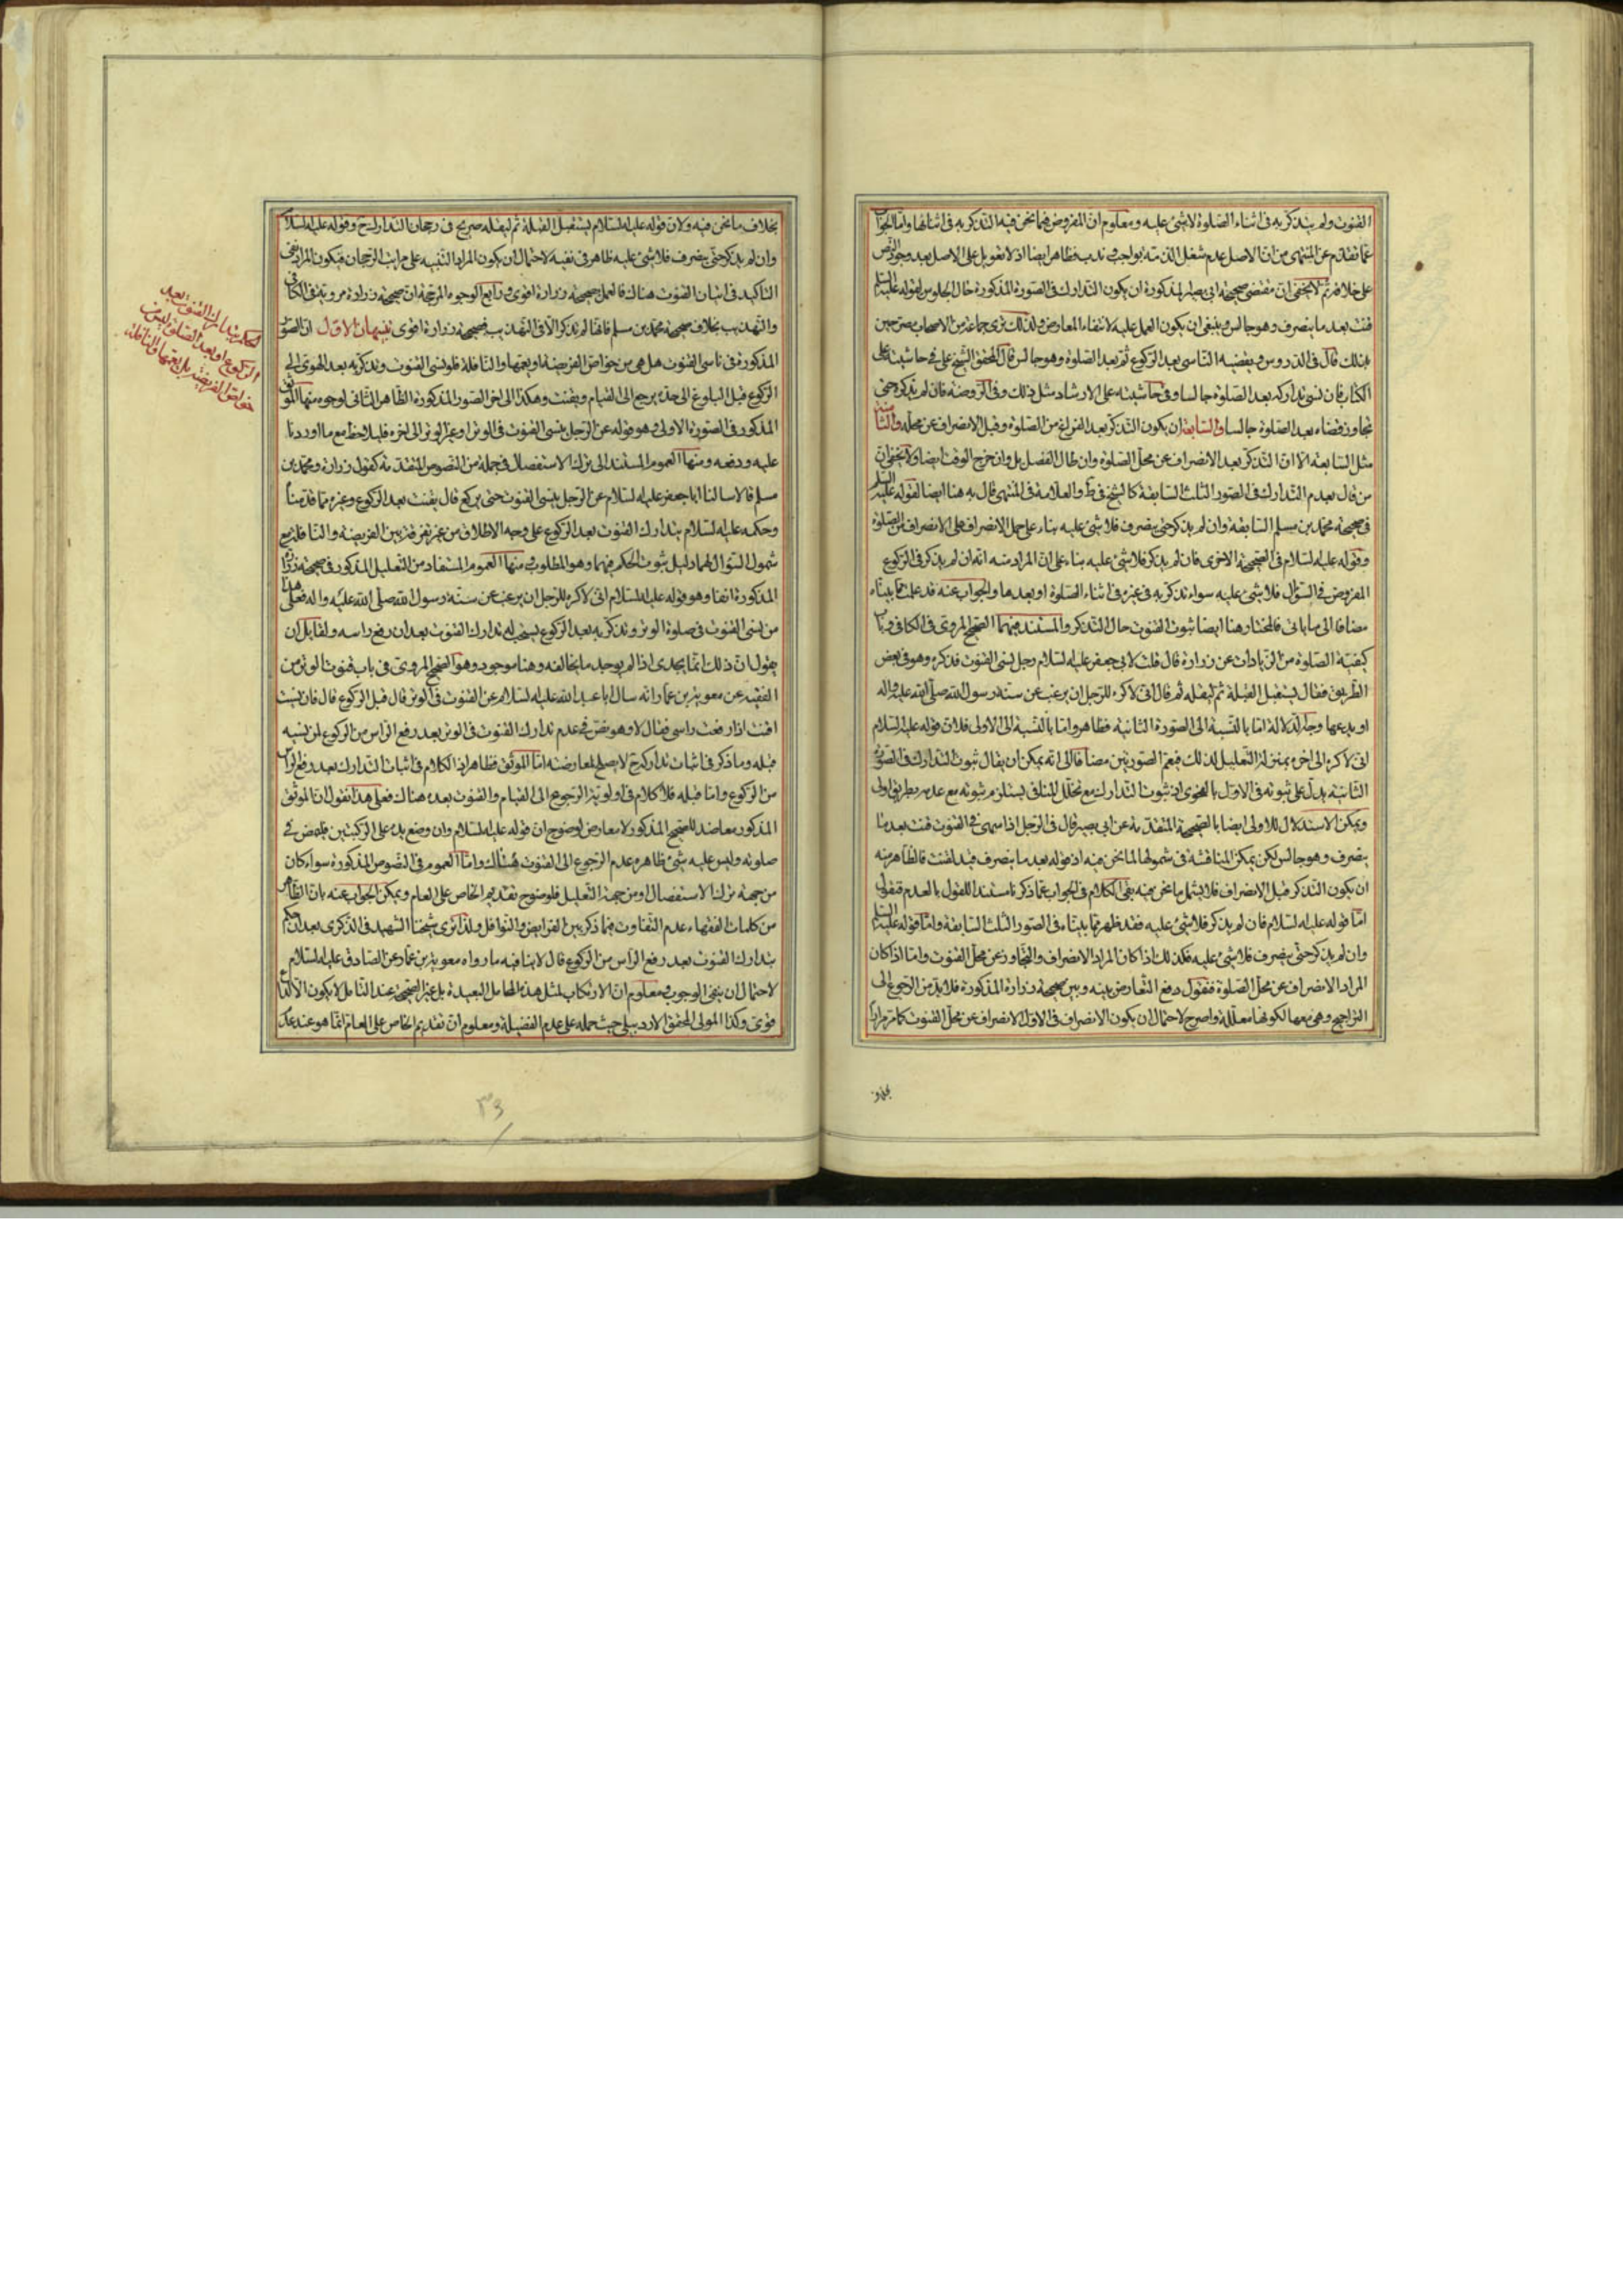 القنوت ولم يتذكر به فى اثناء الصلوة لا شئ عليه ومعلوم ان المفروض فيما نحن فيه التذكر به فى اثنائها واما الجواب
عما تقدم عن المنتهى من ان الاصل عدم شغل الذمة بواجب او ندب فظاهر ايضا اذ لا تعويل على الاصل بعد وجود النص
على خلافه ثم لا يخفى ان مقتضى صحيحة ابى بصير المذكورة ان يكون التدارك فى الصورة المذكورة حال الجلوس لقوله عليه السلم
قنت بعد ما ينصرف وهو جالس وينبغى ان يكون العمل عليه لانتفاء المعارض ولذلك ترى جماعة من الاصحاب مصرحين
بذلك قال فى الدروس ويقضيه الناسى بعد الركوع ثم بعد الصلوة وهو جالس قال المحقق الشيخ على فى حاشيته على
الكتاب فان نسى تداركه بعد الصلوة جالسا وفى حاشيته على الارشاد مثل ذلك وفى الروضة فان لم يذكره حتى
تجاوز قضاه بعد الصلوة جالسا والسابعة ان يكون التذكر بعد الفراغ من الصلوة وقبل الانصراف عن محله والثامنة
مثل السابعة الا ان التذكر بعد الانصراف عن محل الصلوة وان طال الفصل بل وان خرج الوقت ايضا ولا يخفى ان
من قال بعدم التدارك فى الصور الثلث السابقة كالشيخ فى ط والعلامة فى المنتهى قال به هنا ايضا لقوله عليه السلم
فى صحيحة محمد بن مسلم السابقة وان لم يذكر حتى ينصرف فلا شئ عليه بناء على حمل الانصراف على الانصراف من الصلوة
وقوله عليه السلام فى الصحيحة الاخرى فان لم يذكر فلا شئ عليه بناء على ان المراد منه انه ان لم يذكر فى الركوع
المفروض فى السؤال فلا شئ عليه سواء تذكر به فى غيره فى اثناء الصلوة او بعدها والجواب عنه قد علمت مما بيناه
مضافا الى ما ياتى فالمختار هنا ايضا ثبوت القنوت حال التذكر والمستند فيهما الصحيح المروى فى الكافى وباب
كيفية الصلوة من الزيادات عن زرارة قال قلت لابى جعفر عليه السلام رجل نسى القنوت فذكره وهو فى بعض
الطريق فقال يستقبل القبلة ثم ليقله ثم قال انى لاكره للرجل ان يرغب عن سنة رسول الله صلى الله عليه واله
او يدعها وجه الدلالة اما بالنسبة الى الصورة الثانية فظاهر واما بالنسبة الى الاولى فلان قوله عليه السلام
انى لاكره الى اخره بمنزلة التعليل لذلك فيعم الصورتين مضافا الى انه يمكن ان يقال ثبوت التدارك فى الصورة
الثانية يدل على ثبوته فى الاول بالفحوى اذ ثبوت التدارك مع تخلل المنافى يستلزم ثبوته مع عدمه بطريق اولى
ويمكن الاستدلال للاولى ايضا بالصحيحة المتقدمة عن ابى بصير قال فى الرجل اذا سهى فى القنوت قنت بعد ما
ينصرف وهو جالس لكن يمكن المناقشة فى شمولها لما نحن فيه اذ قوله بعد ما ينصرف قيد لقنت فالظاهر منه
ان يكون التذكر قبل الانصراف فلا يشمل ما نحن فيه بقى الكلام فى الجواب عما ذكرنا مستندا للقول بالعدم فنقول
اما قوله عليه السلام فان لم يذكر فلا شئ عليه فقد ظهر مما بيناه فى الصور الثلث السابقة واما قوله عليه السلم
وان لم يذكر حتى ينصرف فلا شئ عليه فكذلك اذا كان المراد الانصراف والتجاوز عن محل القنوت واما اذا كان
المراد الانصراف عن محل الصلوة فنقول دفع التعارض بينه وبين صحيحة زرارة المذكورة فلا بد من الرجوع الى
التراجيح وهى معها لكونها معللة واصرح لاحتمال ان يكون الانصراف فى الاول الانصراف عن محل القنوت كما مر مرارا
بخلاف
بخلاف ما نحن فيه ولان قوله عليه السلام يستقبل القبلة ثم ليقله صريح فى رجحان التدارك ح وقوله عليه السلام
وان لم يذكر حتى ينصرف فلا شئ عليه ظاهر فى نفيه لاحتمال ان يكون المراد التنبيه على مراتب الرجحان فيكون المراد نفى
التاكيد فى اتيان القنوت هناك فالعمل بصحيحة زرارة اقوى ورابع الوجوه المرجحة ان صحيحة زرارة مروية فى الكافى
والتهذيب بخلاف صحيحة محمد بن مسلم فانها لم تذكر الا فى التهذيب فصحيحة زرارة اقوى تنبيهان الاول ان الصور
المذكورة فى ناسى القنوت هل هى من خواص الفريضة او يعمها والنافلة فلو نسى القنوت وتذكر به بعد الهوى الى
الركوع قبل البلوغ الى حده يرجع الى القيام ويقنت وهكذا الى اخر الصور المذكورة الظاهر الثانى لوجوه منها الموثق
المذكور فى الصورة الاولى وهو قوله عن الرجل ينسى القنوت فى الوتر او غير الوتر الى اخره فليلاحظ مع ما اوردنا
عليه ودفعه ومنها العموم المستند الى ترك الاستفصال فى جملة من النصوص المتقدمة كقول زرارة ومحمد بن
مسلم قالا سالنا ابا جعفر عليه السلام عن الرجل ينسى القنوت حتى يركع قال يقنت بعد الركوع وغيره مما قدمنا
وحكمه عليه السلام بتدارك القنوت بعد الركوع على وجه الاطلاق من غير تفرقة بين الفريضة والنافلة مع
شمول السؤال لهما دليل ثبوت الحكم فيهما وهو المطلوب ومنها العموم المستفاد من التعليل المذكور فى صحيحة زرارة
المذكورة انفا وهو قوله عليه السلام انى لاكره للرجل ان يرغب عن سنة رسول الله صلى الله عليه واله فعلى هذا
من نسى القنوت فى صلوة الوتر وتذكر به بعد الركوع يستحب له تدارك القنوت بعد ان رفع راسه ولقائل ان
يقول ان ذلك انما يجدى اذا لم يوجد ما يخالفه وهنا موجود وهو الصحيح المروى فى باب قنوت الوتر من
الفقيه عن معوية بن عمار انه سال ابا عبد الله عليه السلام عن القنوت فى الوتر قال قبل الركوع قال فان نسيت
اقنت اذا رفعت راسى فقال لا وهو نص فى عدم تدارك القنوت فى الوتر بعد رفع الراس من الركوع لمن نسيه
قبله وما ذكر فى اثبات تداركه ح لا يصلح لمعارضته اما الموثق فظاهر اذ الكلام فى اثبات التدارك بعد رفع الراس
من الركوع واما قبله فلا كلام فى اولوية الرجوع الى القيام والقنوت بعده هناك فعلى هذا نقول ان الموثق
المذكور معاضد للصحيح المذكور لا معارض لوضوح ان قوله عليه السلام وان وضع يده على الركبتين فليمض فى
صلوته وليس عليه شئ ظاهره عدم الرجوع الى القنوت هنالك واما العموم فى النصوص المذكورة سواء كان
من جهة ترك الاستفصال او من جهة التعليل فلوضوح تقديم الخاص على العام ويمكن الجواب عنه بان الظاهر
من كلمات الفقهاء عدم التفاوت فيما ذكر بين الفرايض والنوافل ولذا ترى شيخنا الشهيد فى الذكرى بعد ان حكم
بتدارك القنوت بعد رفع الراس من الركوع قال لا ينافيه ما رواه معوية بن عمار عن الصادق عليه السلام
لاحتمال ان ينفى الوجوب ومعلوم ان الارتكاب لمثل هذه المحامل البعيدة بل غير الصحيحة عند التامل لا يكون الا لداع
قوى وكذا المولى المحقق الاردبيلى حيث حمله على عدم الفضيلة ومعلوم ان تقديم الخاص على العام انما هو عند عدم
الحكم بتدارك القنوت بعد
الركوع او بعد الصلوة ليس من
خواص الفريضة بل يعمها والنافلة